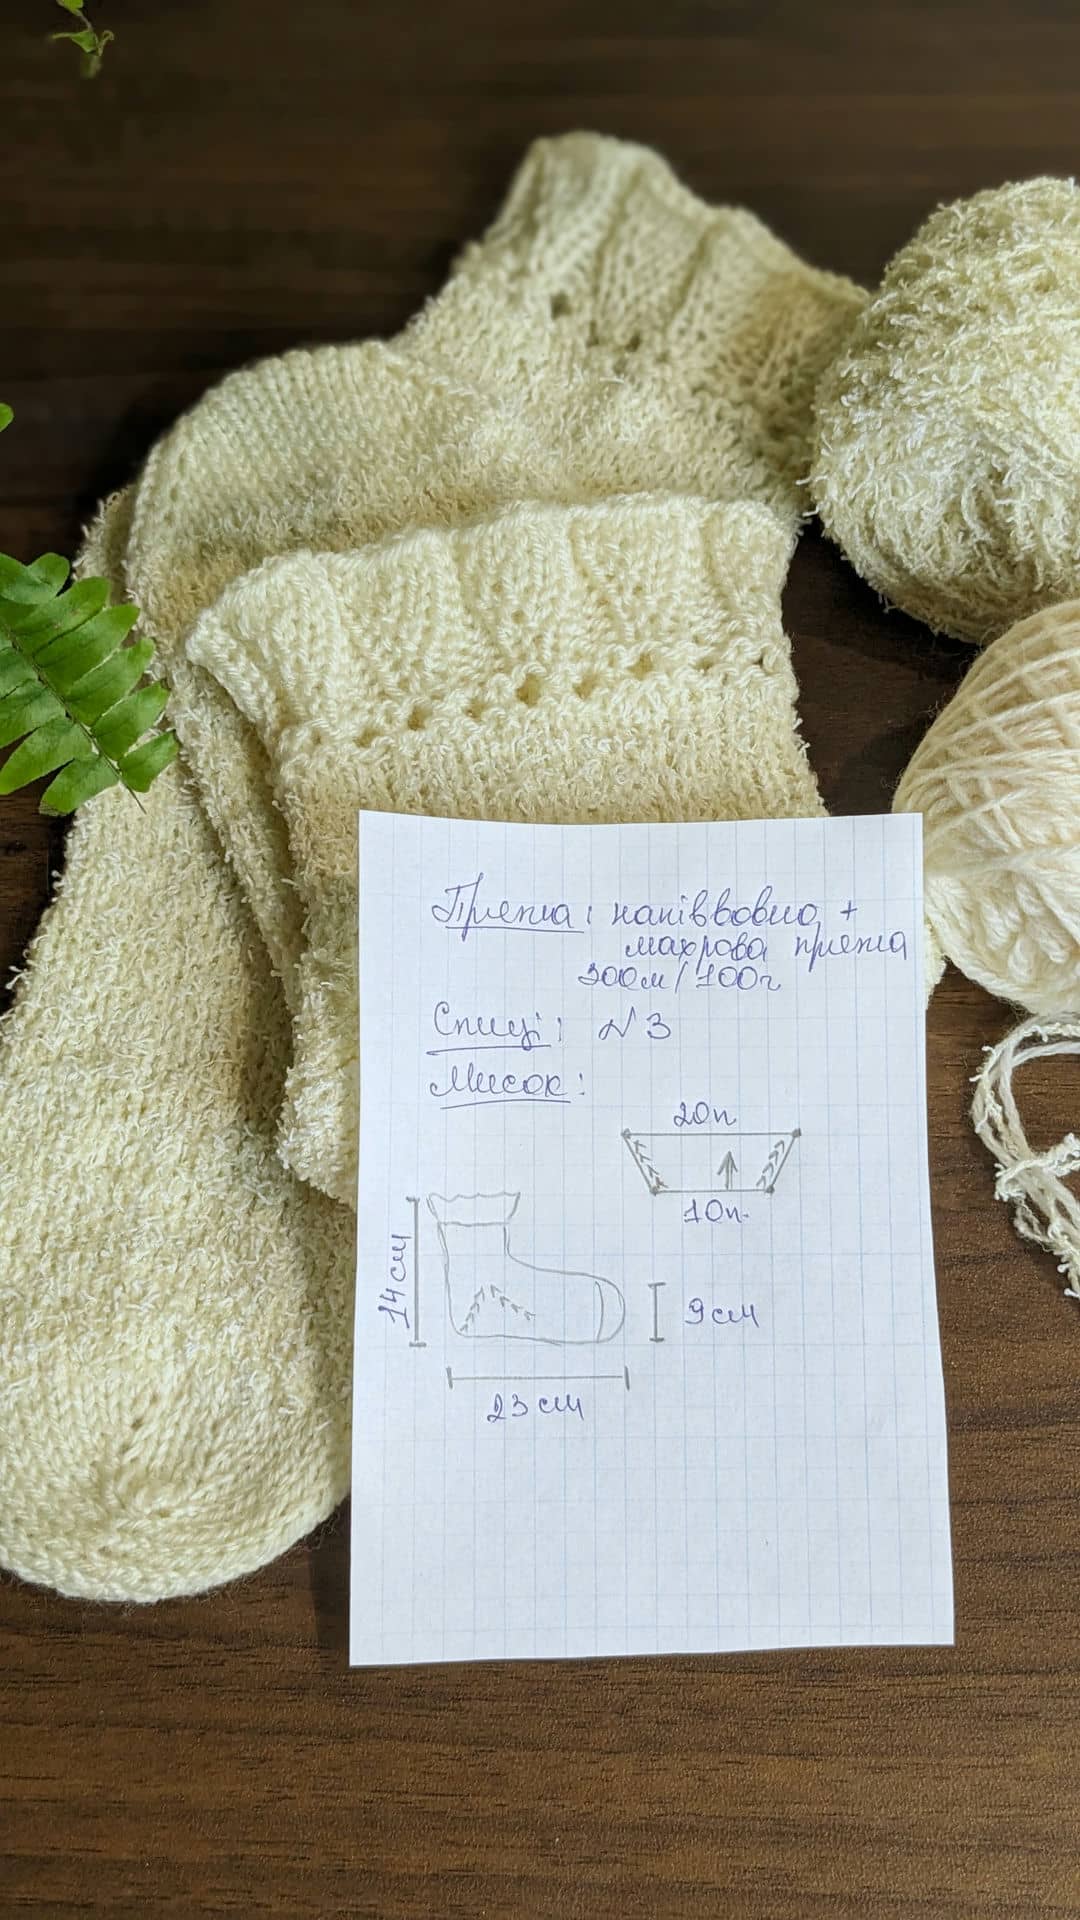 Пряжа: напіввовна +
махрова пряжа
300м/100г
Спиці: №3
Мисок:
20п
10п.
14см
9см
23см